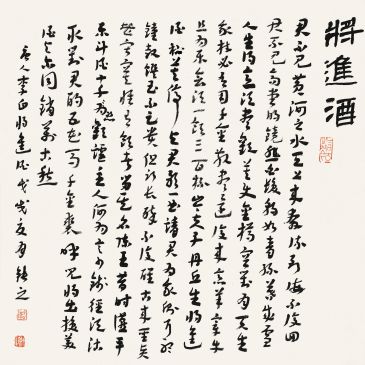 將進酒
君不見黃河之水天上來奔流到海不復回
君不見高堂明鏡悲白髮朝如青絲暮成雪
人生得意須盡歡莫使金樽空對月天生
我材必有用千金散盡還復來烹羊宰牛
且為樂會須一飲三百杯岑夫子丹丘生將進
酒杯莫停與君歌一曲請君為我傾耳聽
鐘鼓饌玉不足貴但願長醉不復醒古來聖賢
皆寂寞惟有飲者留其名陳王昔時宴平
樂斗酒十千恣歡謔主人何為言少錢徑須沽
取對君酌五花馬千金裘呼兒將出換美
酒與爾同銷萬古愁
唐人李白將進酒戊戌夏